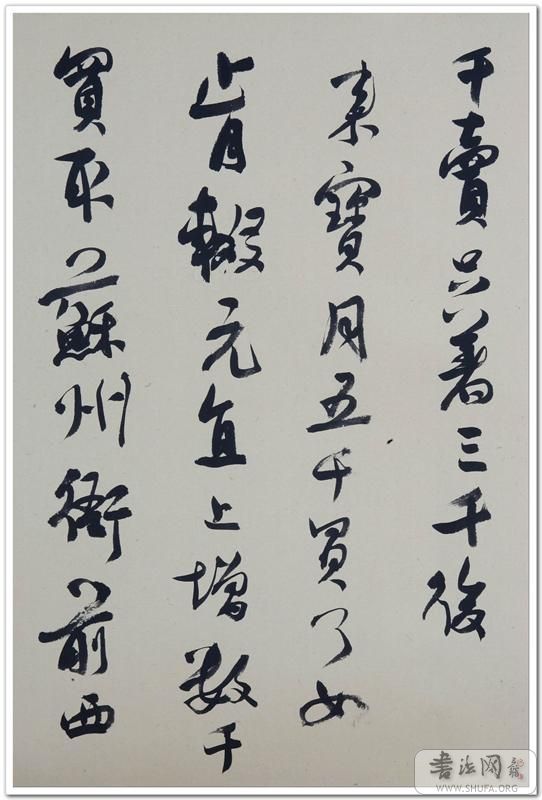 千賣只著三千後
來寶月五千買了如
肯月輟元直上增數千
買取蘇州衙前西
書法网
WWW.SHUFA.ORG